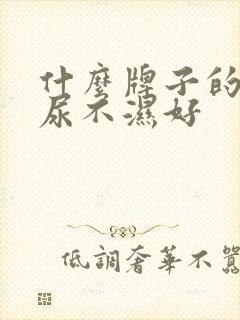 什麼牌子的
尿不濕好
低調奢華不囂